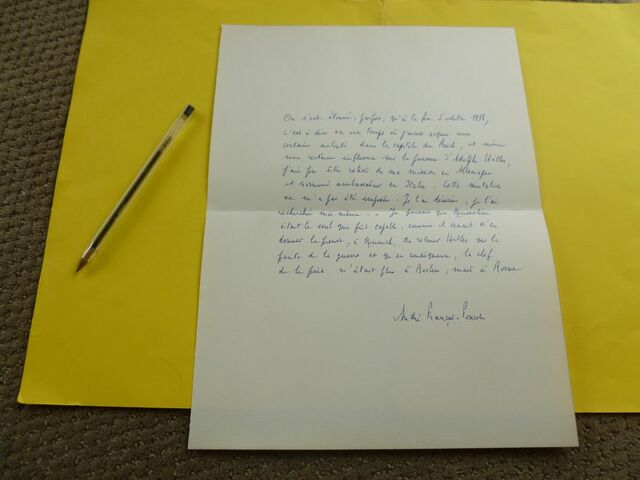 On s'est étonné, parfois, qu'à la fin d'octobre 1938,
c'est à dire en un temps où j'avais acquis une
certaine autorité dans la capitale du Reich, et même
une certaine influence sur la personne d'Adolph Hitler,
j'aie pu être relevé de ma mission en Allemagne
et nommé ambassadeur en Italie. Cette mutation
ne m'a pas été imposée. Je l'ai désirée, je l'ai
recherchée moi même... Je pensais que Mussolini
était le seul qui fût capable, comme il venait d'en
donner la preuve, à Munich, de retenir Hitler sur la
pente de la guerre et qu'en conséquence, la clef
de la paix n'était plus à Berlin, mais à Rome
André François-Poncet